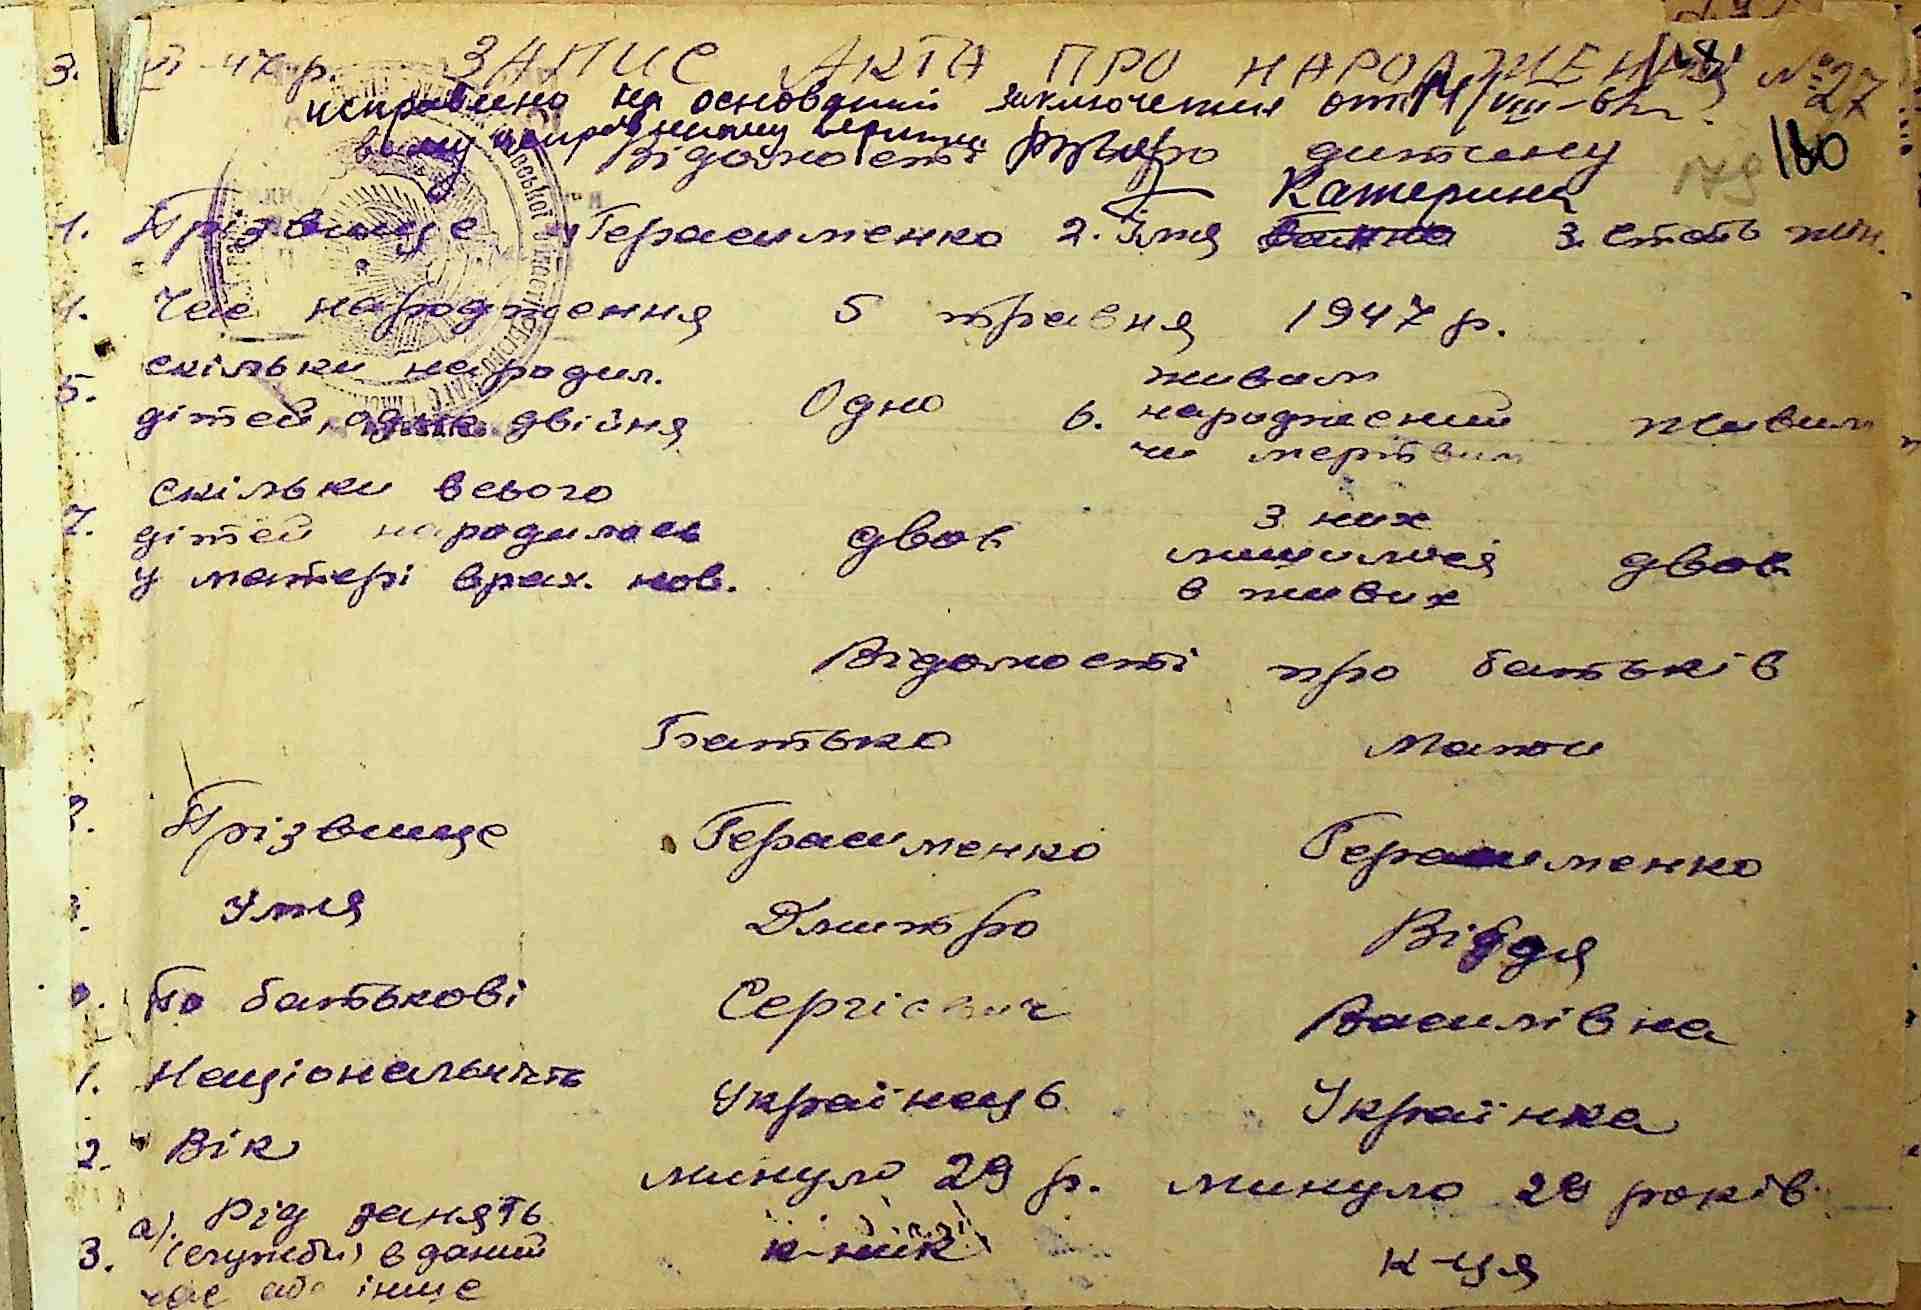 3. VI-47 р. ЗАПИС АКТА ПРО НАРОДЖЕННЯ № 27
исправлено на основании заключения от 14/VIII-62 г.
180
179
Відомості про дитину
Катерина
1. Прізвище Герасименко 2. Імя Ганна 3. стать жін.
4. Час народження 5 травня 1947 р.
5. скільки народил. дітей, одне, двійня Одно 6. живим народжений чи мертвим живим
7. скільки всього дітей народилось у матері врах. нов. двоє З них лишилися в живих двоє
Відомості про батьків
Батько Мати
8. Прізвище Герасименко Герасименко
9. Имя Дмитро Віддя
0. По батькові Сергієвич Василівна
1. Національність Українець Українка
2. Вік минуло 29 р. минуло 28 років
3. а). Рід занять (служби) в даний час або інше к-ник к-ця